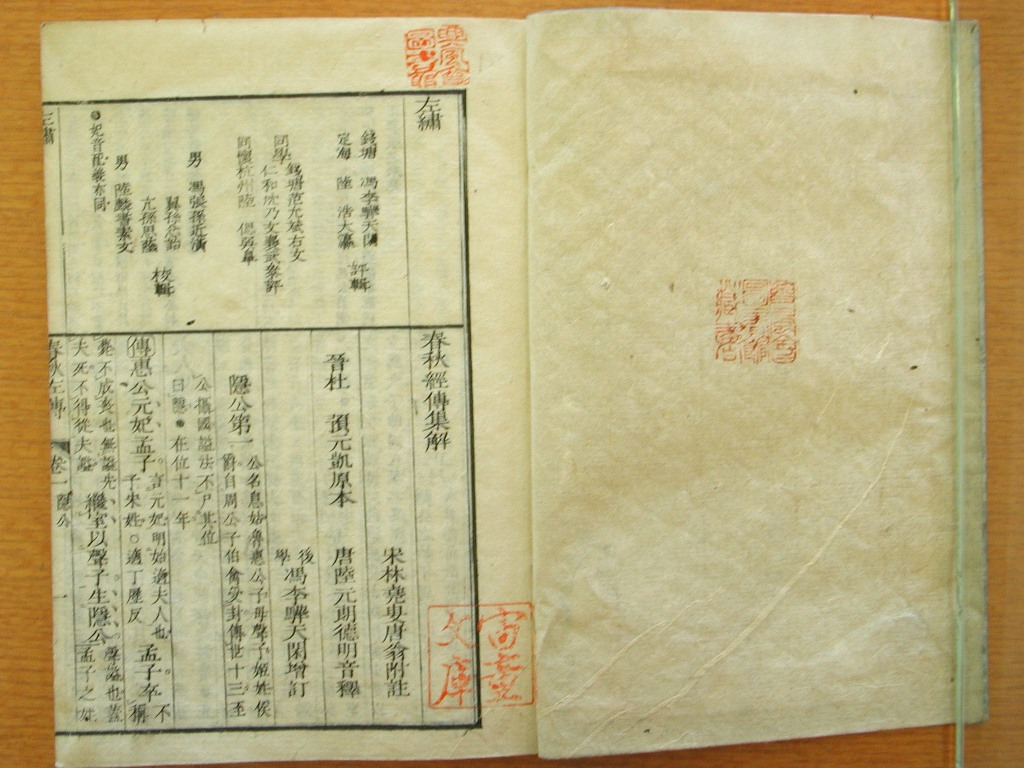 左繡
錢塘 馮李驊天閑
定海 陸浩大瀛
評輯
同學
錢塘范允斌右文
仁和沈乃文襄武
參評
同懷杭州陸偲
男 馮張孫近潢
翼孫
校輯
男 陸麟書素文
亢孫思蔭
妃音配
左繡
春秋經傳集解
宋林堯叟唐翁附註
晉杜 預元凱原本
唐陸元朗德明音釋
後學 馮李驊天閑增訂
隱公第一
公名息姑魯惠公子母聲子姬姓侯
爵自周公子伯禽受封傳世十三至
公攝國諡法不尸其位
曰隱 在位十一年
傳惠公元妃孟子
言元妃明始適夫人也
子宋姓○適丁歷反
孟子卒
不稱
薨不成喪也無諡先
夫死不得從夫諡
繼室以聲子生隱公
聲諡也蓋
孟子之姪
春秋左傳 卷一 隱公 一
文庫